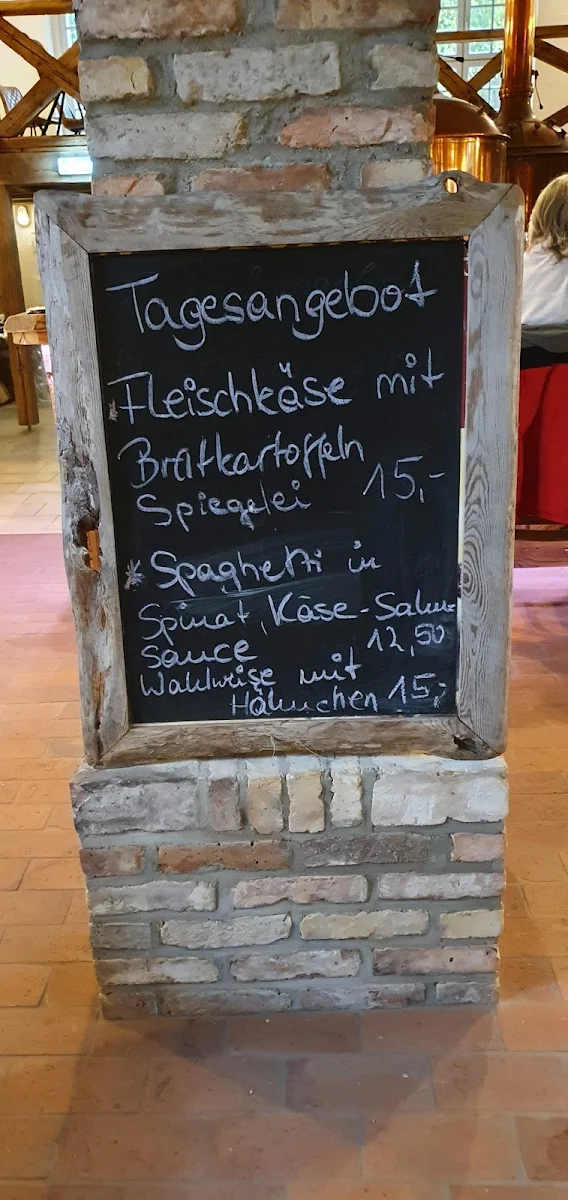 Tagesangebot
* Fleischkäse mit
Bratkartoffeln
Spiegelei 15,-
* Spaghetti in
Spinat, Käse-Sahne-
Sauce 12,50
Wahlweise mit
Hähnchen 15,-